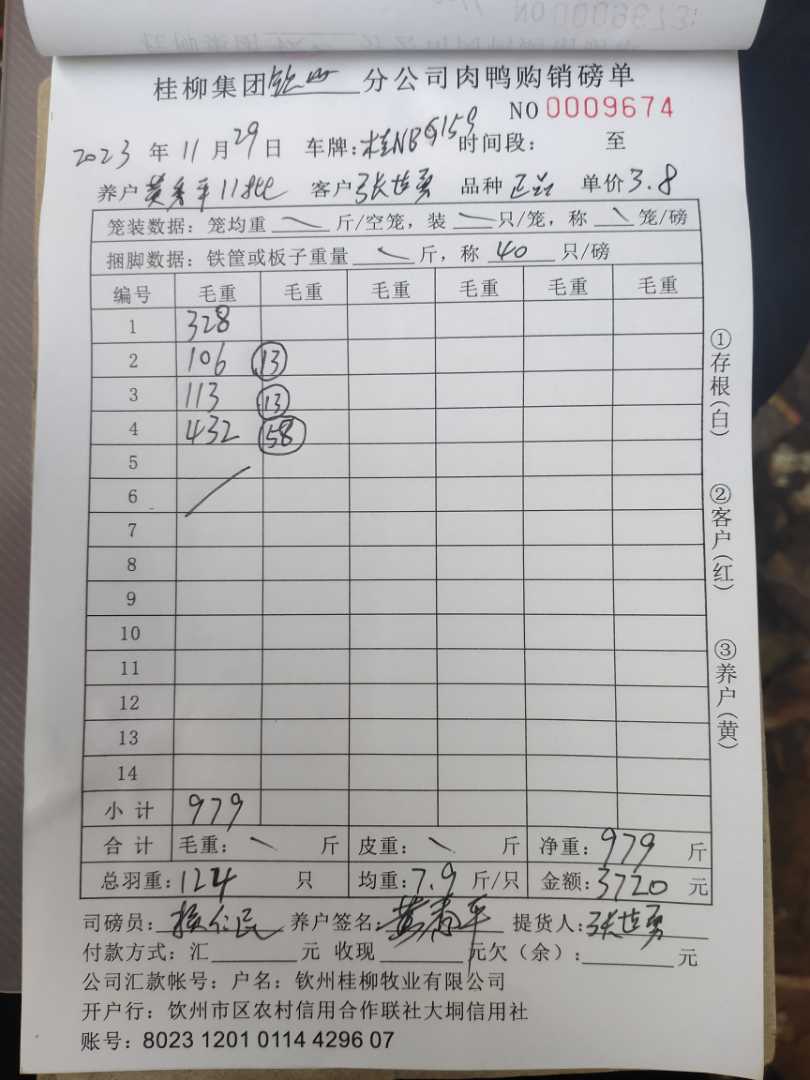 桂柳集团钦州分公司肉鸭购销磅单
NO 0009674
2023年11月29日 车牌:桂NBG159 时间段: 至
养户 黄秀平11批 客户 张世勇 品种 正品 单价 3.8
笼装数据:笼均重 斤/空笼,装 只/笼,称 笼/磅
捆脚数据:铁筐或板子重量 斤,称 40 只/磅
编号 毛重 毛重 毛重 毛重 毛重 毛重
1 328
2 106 13
3 113 13
4 432 58
5
6
7
8
9
10
11
12
13
14
小计 979
合计 毛重: 斤 皮重: 斤 净重:979 斤
总羽重:124 只 均重:7.9 斤/只 金额:3720 元
司磅员: 养户签名:黄秀平 提货人:张世勇
付款方式:汇 元 收现 元欠(余): 元
公司汇款帐号:户名:钦州桂柳牧业有限公司
开户行:饮州市区农村信用合作联社大垌信用社
账号:8023 1201 0114 4296 07
①存根(白)
②客户(红)
③养户(黄)